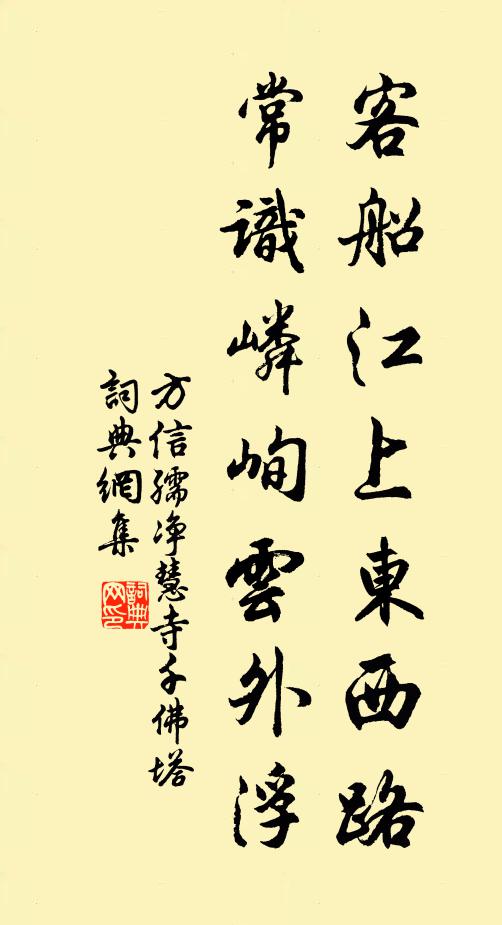 客船江上東西路
常識嶙峋雲外浮
方信孺净慧寺千佛塔
詞典網集
詞典
网印